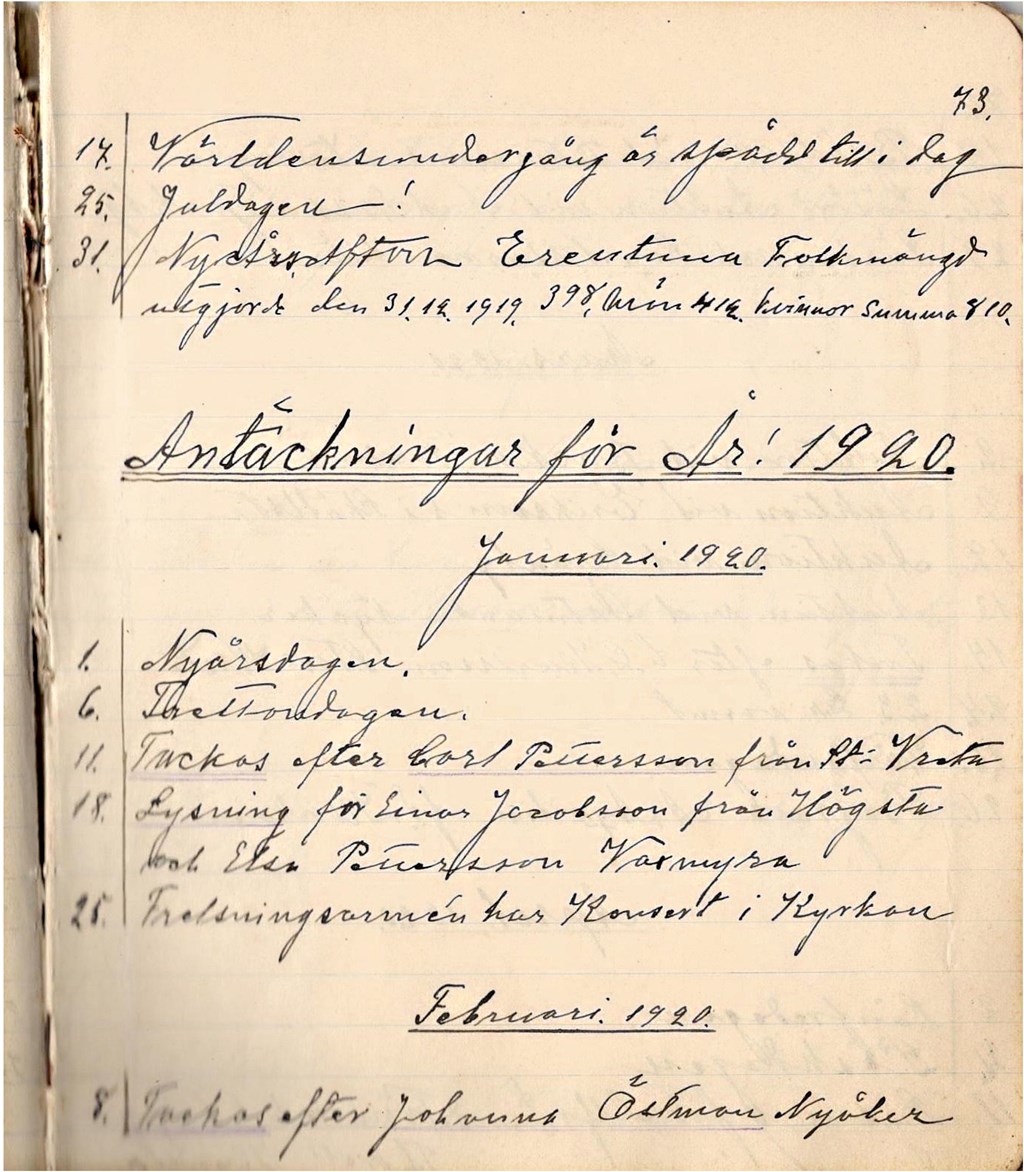 73.
17. Världensundergång är spådd till i dag
25. Juldagen!
31. Nyårsafton Erentuna Folkmängd
utgjorde den 31.12.1919. 398, Män 412. kvinnor Summa 810.
Antäckningar för År! 1920.
Januari. 1920.
1. Nyårsdagen.
6. Trettondagen.
11. Tackas efter Carl Pettersson från St: Vreta
18. Lysning för Einar Jacobsson från Högsta
och Elsa Pettersson Vaxmyra
25. Frelsningsarmén har Konsert i Kyrkan
Februari. 1920.
8. Tackas efter Johanna Östman Nyåker